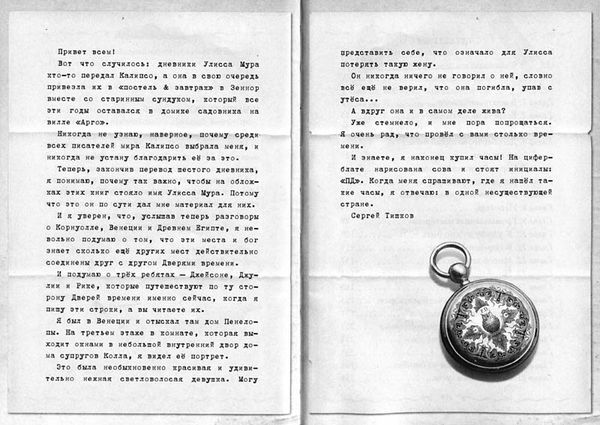 Привет всем!
Вот что случилось: дневники Улисса Мура
кто-то передал Калипсо, а она в свою очередь
привезла их в «постель & завтрак» в Зеннор
вместе со старинным сундуком, который все
эти годы оставался в домике садовника на
вилле «Арго».
Никогда не узнаю, наверное, почему среди
всех писателей мира Калипсо выбрала меня, и
никогда не устану благодарить её за это.
Теперь, закончив перевод шестого дневника,
я понимаю, почему так важно, чтобы на облож-
ках этих книг стояло имя Улисса Мура. Потому
что это он по сути дал мне материал для них.
И я уверен, что, услышав теперь разговоры
о Корнуолле, Венеции и Древнем Египте, я не-
вольно подумаю о том, что эти места и бог
знает сколько ещё других мест действительно
соединены друг с другом Дверями времени.
И подумаю о трёх ребятах — Джейсоне, Джу-
лии и Рике, которые путешествуют по ту сто-
рону Дверей времени именно сейчас, когда я
пишу эти строки, а вы читаете их.
Я был в Венеции и отыскал там дом Пенело-
пы. На третьем этаже в комнате, которая вы-
ходит окнами в небольшой внутренний двор до-
ма супругов Колла, я видел её портрет.
Это была необыкновенно красивая и удиви-
тельно нежная светловолосая девушка. Могу
представить себе, что означало для Улисса
потерять такую жену.
Он никогда ничего не говорил о ней, словно
всё ещё не верил, что она погибла, упав с
утёса...
А вдруг она и в самом деле жива?
Уже стемнело, и мне пора попрощаться.
Я очень рад, что провёл с вами столько вре-
мени.
И знаете, я наконец купил часы! На цифер-
блате нарисована сова и стоят инициалы:
«ПД». Когда меня спрашивают, где я нашёл та-
кие часы, я отвечаю: в одной несуществующей
стране.
Сергей Тишков